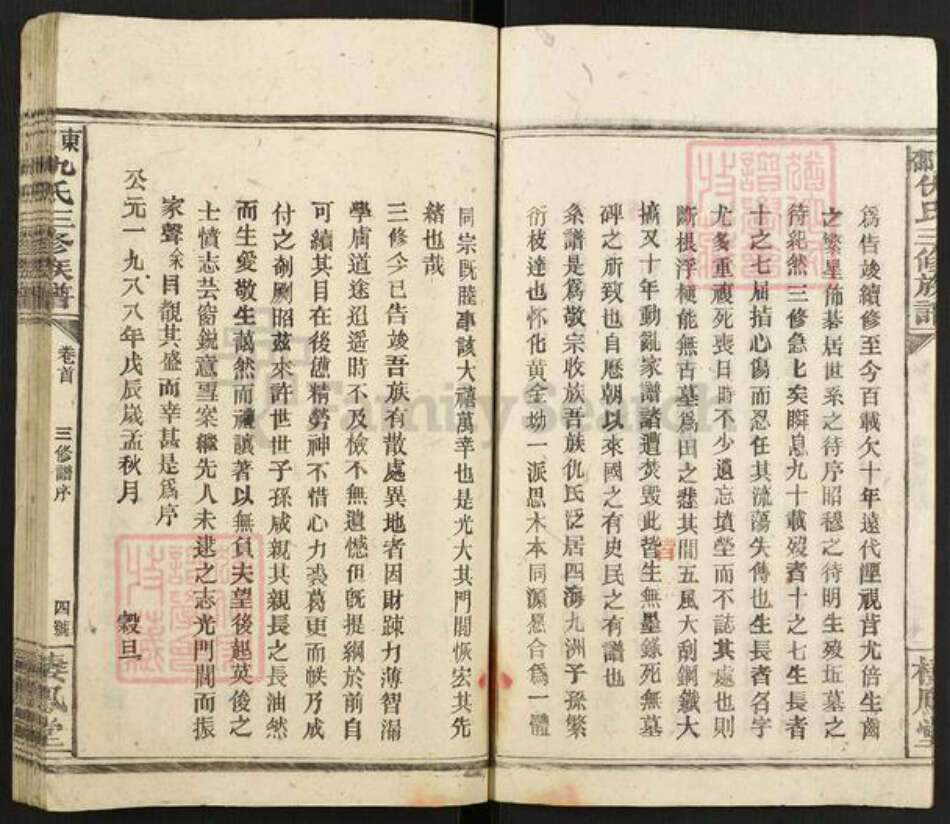 為告竣續修至今百載欠十年遠代湮視昔尤倍生齒
之繁星佈碁居世系之待序昭穆之待明生歿坵墓之
待紀然三修急匕矣瞬息九十載歿者十之七生長者
十之七屈指心傷而忍任其流蕩失傳也生長者名字
尤多重複死喪日時不少遺忘墳塋而不誌其處也則
斷根浮梗能無古墓為田之悲其間五風大刮鋼鐵大
搞又十年動亂家譜諸遭焚毀此皆生無墨錄死無墓
碑之所致也自歷朝以來國之有史民之有譜也
系譜是為敬宗收族吾族仇氏泛居四海九洲子孫繁
衍枝達也怀化黃金坳一派思木本同源愿合為一體
同宗既睦事該大禧萬幸也是光大其門閭恢宏其先
緒也哉
三修今已告竣吾族有散處異地者因財踈力薄智淺
學膚道途迢遥時不及檢不無遺憾但既提綱於前自
可續其目在後僬精勞神不惜心力裘葛更而帙乃成
付之剞劂昭茲來許世世子孫咸親其親長之長油然
而生愛敬生藹然而禮讓著以無負夫望後起英俊之
士憤志芸窗鋭意雪案繼先人未逮之志光門閭而振
家聲余目覩其盛而幸甚是為序
公元一九八八年戊辰歲孟秋月 穀旦
東
仇氏三修族譜
卷首
三修譜序
四號
棲鳳堂